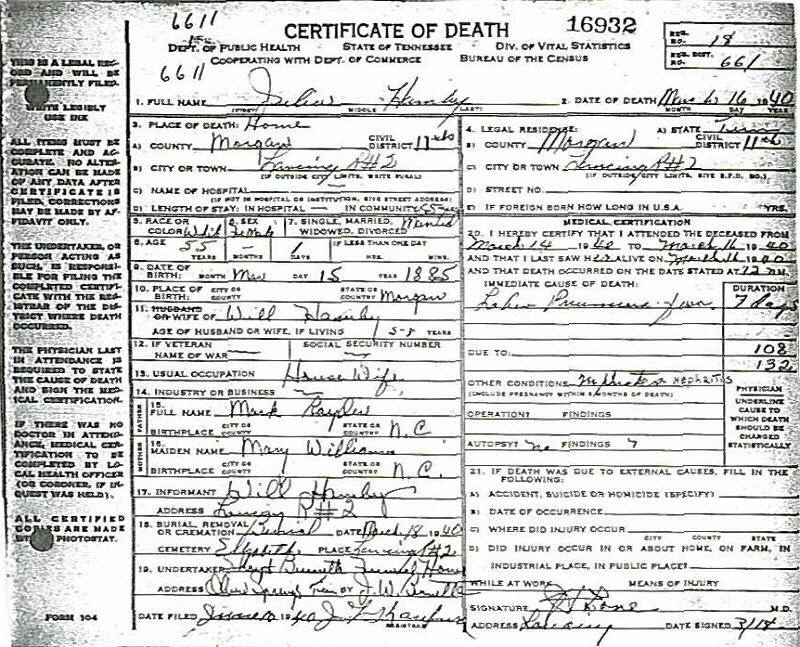 6611
CERTIFICATE OF DEATH
16932
REG. NO. 18
REG. DIST. NO. 661
15
DEPT. OF PUBLIC HEALTH STATE OF TENNESSEE DIV. OF VITAL STATISTICS
6611
COOPERATING WITH DEPT. OF COMMERCE BUREAU OF THE CENSUS
THIS IS A LEGAL RECORD AND WILL BE PERMANENTLY FILED.
WRITE LEGIBLY
USE INK
ALL ITEMS MUST BE
COMPLETE AND ACCURATE. NO ALTERATION CAN BE MADE
OF ANY DATA AFTER
CERTIFICATE IS
FILED, CORRECTIONS
MAY BE MADE BY AFFIDAVIT ONLY.
THE UNDERTAKER, OR
PERSON ACTING AS
SUCH, IS RESPONSIBLE FOR FILING THE
COMPLETED CERTIFICATE WITH THE REGISTRAR OF THE DISTRICT WHERE DEATH
OCCURRED.
THE PHYSICIAN LAST
IN ATTENDANCE IS
REQUIRED TO STATE
THE CAUSE OF DEATH
AND SIGN THE MEDICAL CERTIFICATION.
IF THERE WAS NO
DOCTOR IN ATTENDANCE, MEDICAL CERTIFICATION TO BE
COMPLETED BY LOCAL HEALTH OFFICER
(OR CORONER, IF INQUEST WAS HELD).
ALL CERTIFIED
COPIES ARE MADE
BY PHOTOSTAT.
FORM 104
1. FULL NAME Hamby (FIRST) MIDDLE (LAST)
2. DATE OF DEATH March 16 1940 MONTH DAY YEAR
3. PLACE OF DEATH: Home
A) COUNTY Morgan CIVIL DISTRICT 11th
B) CITY OR TOWN Lancing R#2
(IF OUTSIDE CITY LIMITS, WRITE RURAL)
C) NAME OF HOSPITAL
(IF NOT IN HOSPITAL OR INSTITUTION, GIVE STREET ADDRESS)
D) LENGTH OF STAY: IN HOSPITAL — IN COMMUNITY 55
4. LEGAL RESIDENCE: A) STATE Tenn
B) COUNTY Morgan CIVIL DISTRICT 11th
C) CITY OR TOWN Lancing R#2
(IF OUTSIDE CITY LIMITS, GIVE R.F.D. NO.)
D) STREET NO.
E) IF FOREIGN BORN HOW LONG IN U.S.A. YRS.
5. RACE OR COLOR White 6. SEX Female 7. SINGLE, MARRIED, WIDOWED, DIVORCED Married
8. AGE 55 YEARS — MONTHS 1 DAYS IF LESS THAN ONE DAY HRS. MINS.
9. DATE OF BIRTH: MONTH Mar DAY 15 YEAR 1885
10. PLACE OF BIRTH: CITY OR COUNTY STATE OR COUNTRY Morgan
11. HUSBAND OR WIFE OF Will Hamby
AGE OF HUSBAND OR WIFE, IF LIVING 55 YEARS
12. IF VETERAN NAME OF WAR — SOCIAL SECURITY NUMBER —
13. USUAL OCCUPATION House Wife
14. INDUSTRY OR BUSINESS
FATHER 15. FULL NAME Mark
BIRTHPLACE CITY OR COUNTY STATE OR COUNTRY N.C
MOTHER 16. MAIDEN NAME Mary Williams
BIRTHPLACE CITY OR COUNTY STATE OR COUNTRY N.C.
17. INFORMANT Will Hamby
ADDRESS Lancing R#2
18. BURIAL, REMOVAL OR CREMATION Burial DATE March 18 1940
CEMETERY PLACE Lancing R#2
19. UNDERTAKER Funeral Home
ADDRESS Oliver Springs Tenn BY J.W.
DATE FILED 1940 REGISTRAR
MEDICAL CERTIFICATION
20. I HEREBY CERTIFY THAT I ATTENDED THE DECEASED FROM
March 14 1940 TO March 16 1940
AND THAT I LAST SAW her ALIVE ON March 16 1940
AND THAT DEATH OCCURRED ON THE DATE STATED AT 12 M.
IMMEDIATE CAUSE OF DEATH: DURATION
Lobar Pneumonia 7 days
DUE TO: 108
132
OTHER CONDITIONS Nephritis
(INCLUDE PREGNANCY WITHIN 3 MONTHS OF DEATH)
PHYSICIAN
UNDERLINE
CAUSE TO
WHICH DEATH
SHOULD BE
CHARGED
STATISTICALLY
OPERATION? FINDINGS
AUTOPSY? no FINDINGS ?
21. IF DEATH WAS DUE TO EXTERNAL CAUSES, FILL IN THE
FOLLOWING:
A) ACCIDENT, SUICIDE OR HOMICIDE (SPECIFY)
B) DATE OF OCCURRENCE
C) WHERE DID INJURY OCCUR
CITY COUNTY STATE
D) DID INJURY OCCUR IN OR ABOUT HOME, ON FARM, IN
INDUSTRIAL PLACE, IN PUBLIC PLACE?
WHILE AT WORK MEANS OF INJURY
SIGNATURE M.D.
ADDRESS Lancing DATE SIGNED 3/18